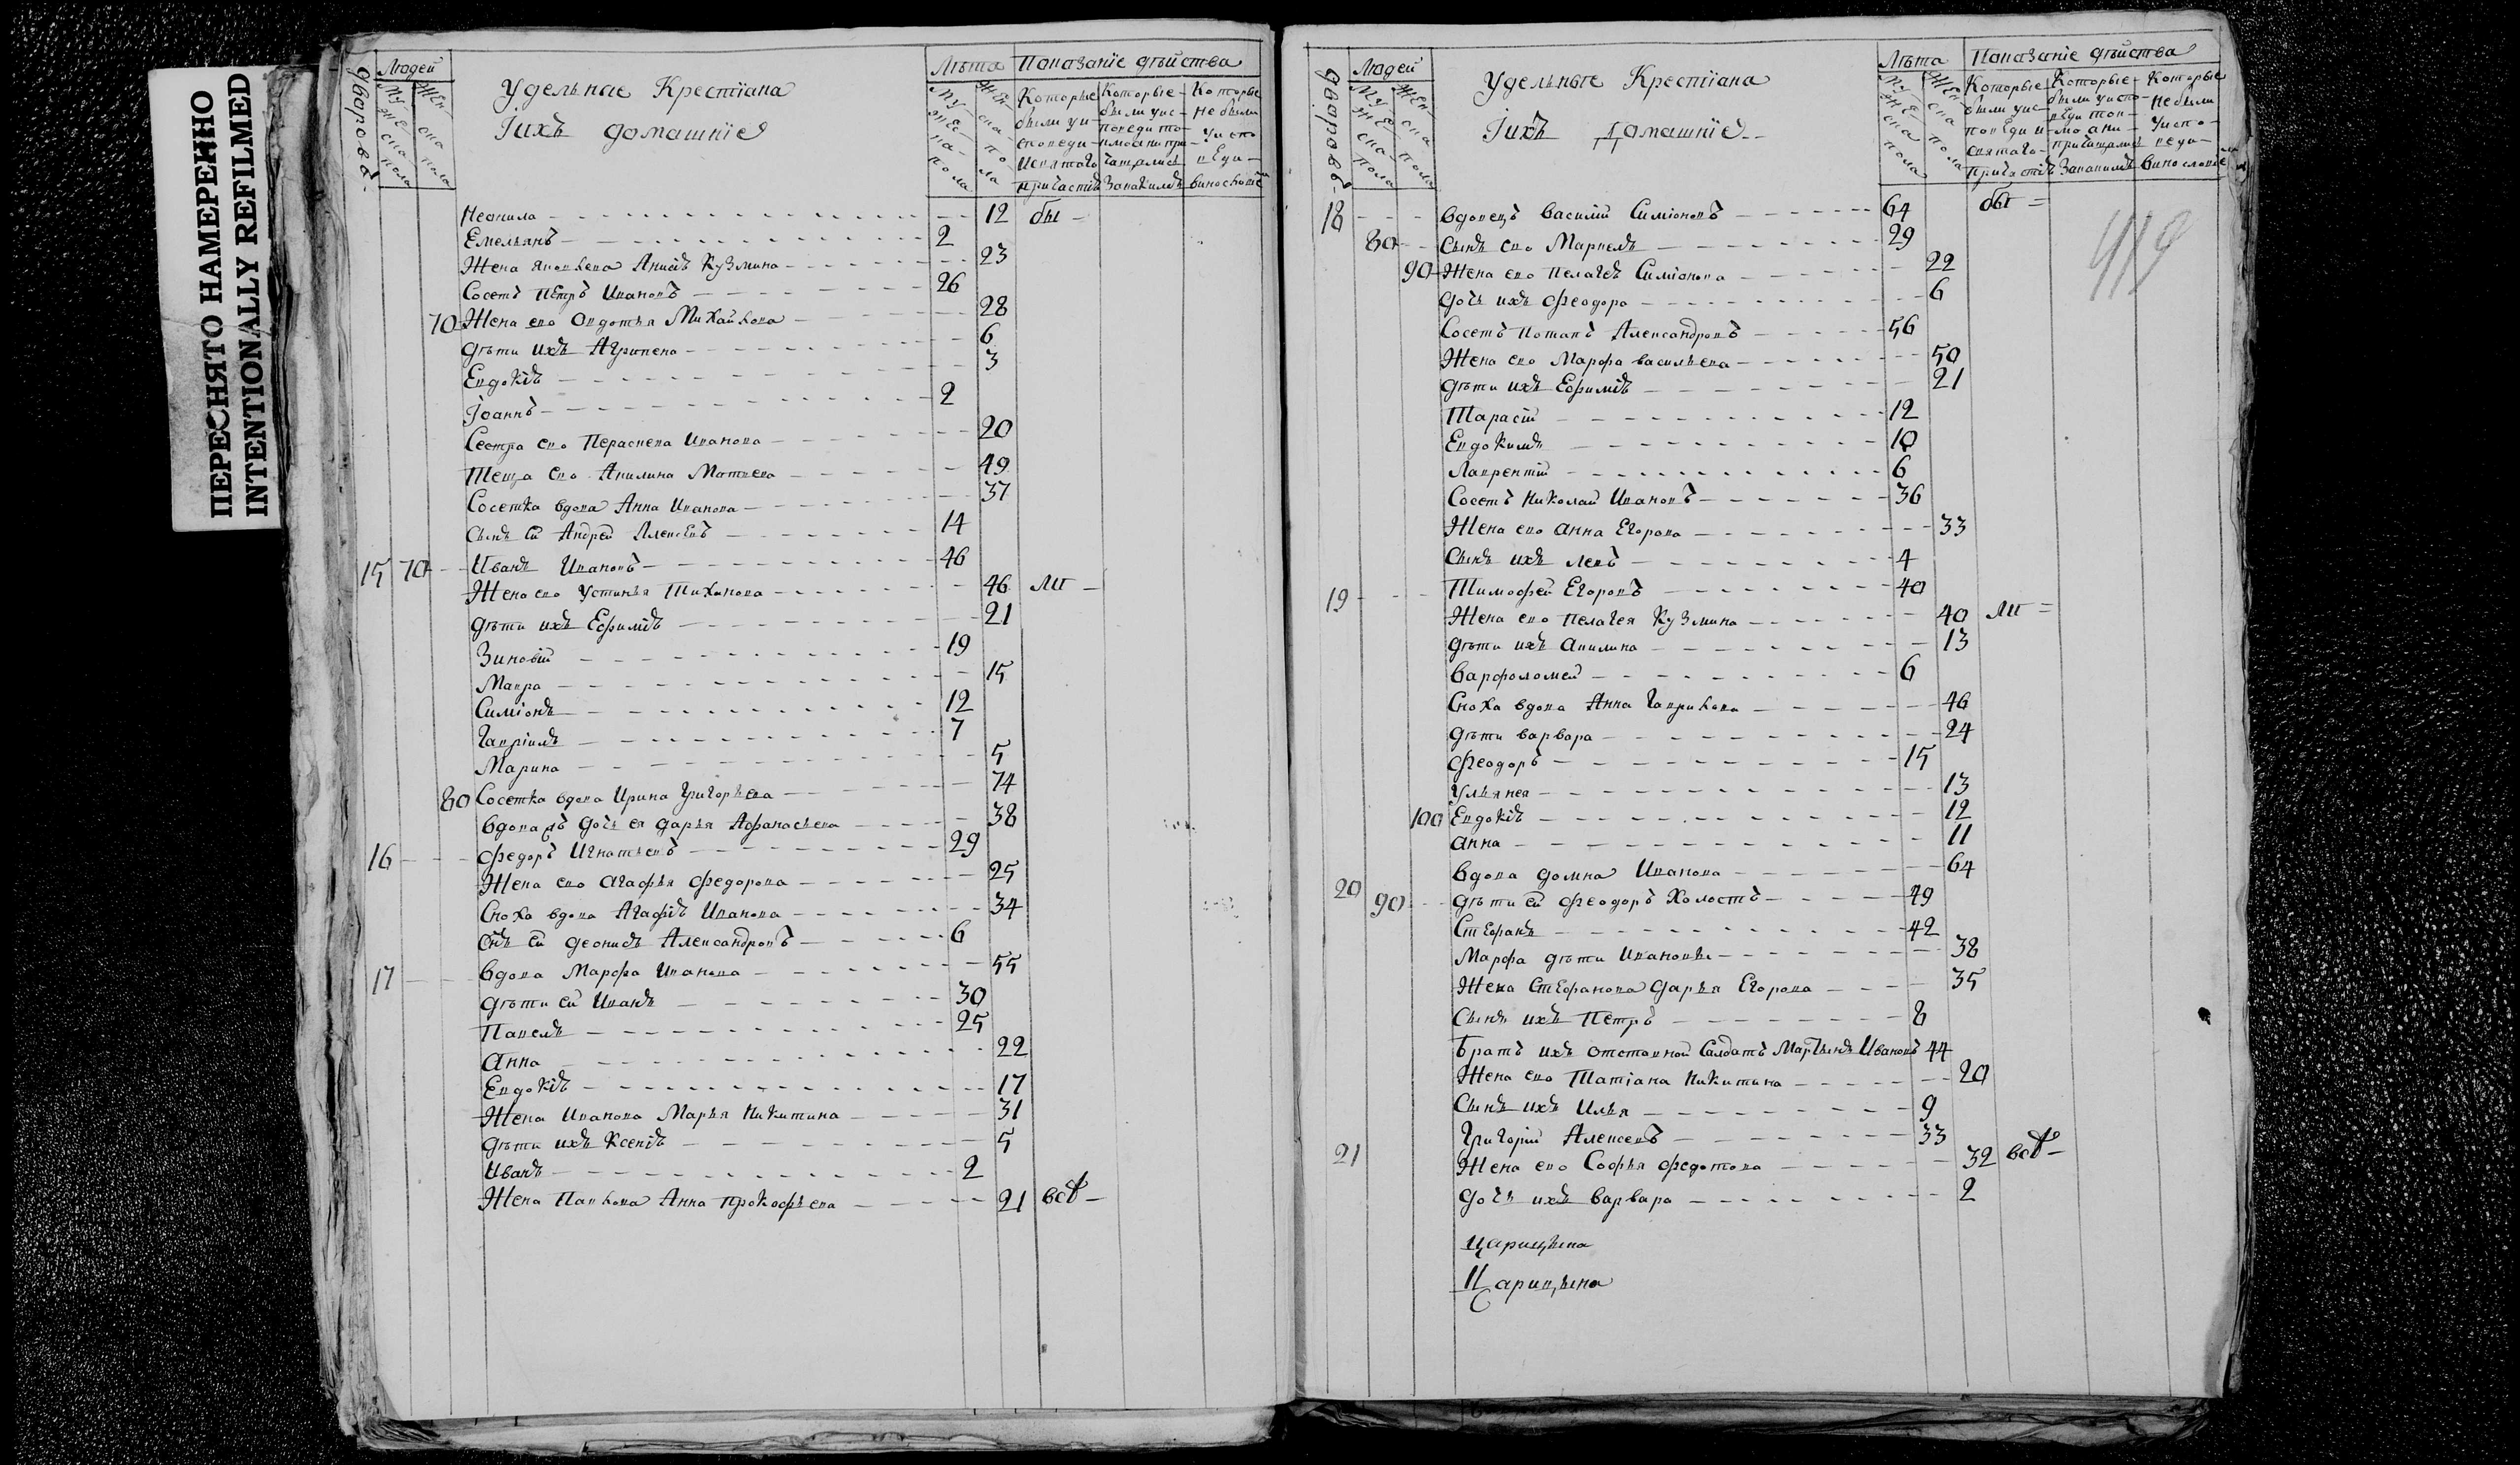 ПЕРЕСНЯТО НАМЕРЕННО
INTENTIONALLY REFILMED
Дворовъ
Людей
Мужеска пола
Женска пола
Удельные Крестіана
Iихъ домашніе
Лѣта
Мужеска пола
Женска пола
Показаніе дѣйства
Которые были уисповеди исвятаго причастія
Которые были уисповеди токмо анипричащались Закакимъ
Которые небыли уисповеди
Неонила 12 бы
Емельянъ 2
Жена яковлева Анисія Кузмина 23
Сосетъ Петръ Ивановъ 26
70 Жена его Овдотья Михайлова 28
дѣти ихъ Агрипена 6
Евдокія 3
Iоаннъ 2
Сестра его Пераскева Иванова 20
Теща его Акилина Матвеева 49
Сосетка вдова Анна Иванова 37
Сынъ ей Андрей Алексеевъ 14
15 70 Иванъ Ивановъ 46
Жена его Устинья Тиханова 46 ли
дѣти ихъ Ефимія 21
Зиновій 19
Мавра 15
Симіонъ 12
Гавріилъ 7
Марина 5
80 Сосетка вдова Ирина Григорьева 74
вдовацъ дочь ея дарья Афанасьева 38
16 Федоръ Игнатьевъ 29
Жена его агафья федорова 25
Сноха вдова Агафія Иванова 34
Снъ ей деонисъ Александровъ 6
17 вдова Марфа Иванова 55
дѣти ей Иванъ 30
Павелъ 25
Анна 22
Евдокія 17
Жена Иванова Марья Никитина 31
дѣти ихъ Ксенія 5
Иванъ 2
Жена Павлова Анна Прокофьева 21 всѣ
Дворовъ
Людей
Мужеска пола
Женска пола
Удельные Крестіана
Iихъ домашніе
Лѣта
Мужеска пола
Женска пола
Показаніе дѣйства
Которые были уисповеди и святаго причастія
Которые были уисповеди токмо ани причащались Закакимъ
Которые небыли уисповеди
419
18 вдовецъ василій Симіоновъ 64 бы
80 Сынъ его Маркелъ 29
90 Жена его пелагея Симіонова 22
дочь ихъ феодора 6
Сосетъ потапъ Александровъ 56
Жена его Марфа васильева 50
дѣти ихъ Ефимія 21
Тарасій 12
Евдокимъ 10
Лаврентій 6
Сосетъ Николай Ивановъ 36
Жена его анна Егорова 33
Сынъ ихъ левъ 4
19 Тимофей Егоровъ 40
Жена его пелагея Кузмина 40 ли
дѣти ихъ акилина 13
варфоломей 6
Сноха вдова Анна Гаврилова 46
дѣти варвара 24
феодоръ 15
Ульянея 13
100 Евдокія 12
анна 11
вдова домна Иванова 64
20 90 дѣти ей феодоръ Холостъ 49
Стефанъ 42
Марфа дѣти Ивановы 38
Жена Стефанова дарья Егорова 35
Сынъ ихъ Петръ 8
Братъ ихъ отставной Салдатъ Мартынъ Ивановъ 44
Жена его Татіана Никитина 20
Сынъ ихъ Илья 9
21 Григорій Алексеевъ 33
Жена его Софья федотова 32 всѣ
дочь ихъ варвара 2
царицына
Царицына